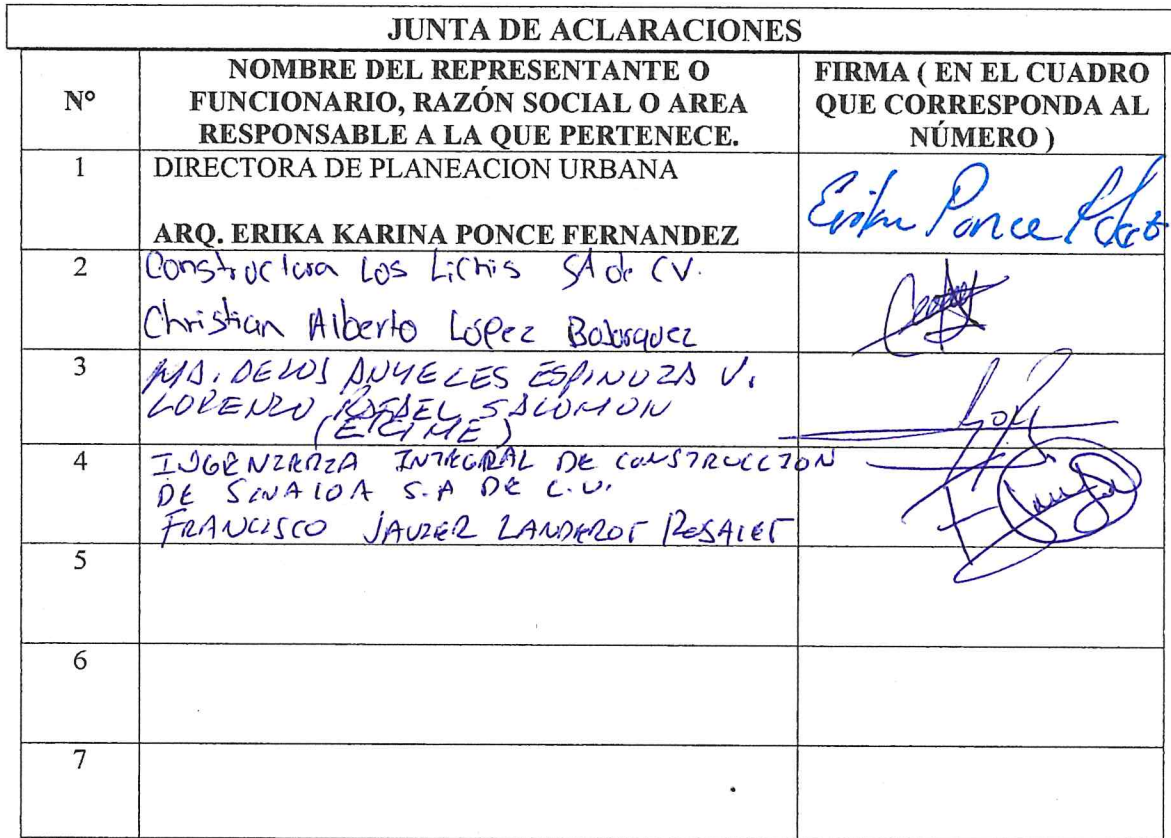 JUNTA DE ACLARACIONES
N°
NOMBRE DEL REPRESENTANTE O
FUNCIONARIO, RAZÓN SOCIAL O AREA
RESPONSABLE A LA QUE PERTENECE.
FIRMA ( EN EL CUADRO
QUE CORRESPONDA AL
NÚMERO )
1
DIRECTORA DE PLANEACION URBANA
ARQ. ERIKA KARINA PONCE FERNANDEZ
Erika Ponce
2
Constructora Los Lichis SA de CV.
Christian Alberto López
3
MA. DE LOS ANGELES ESPINOZA V.
LORENZO RAFAEL SALOMON
(EICIME)
4
INGENIERIA INTEGRAL DE CONSTRUCCION
DE SINALOA S.A DE C.V.
FRANCISCO JAVIER LANDEROS ROSALES
5
6
7